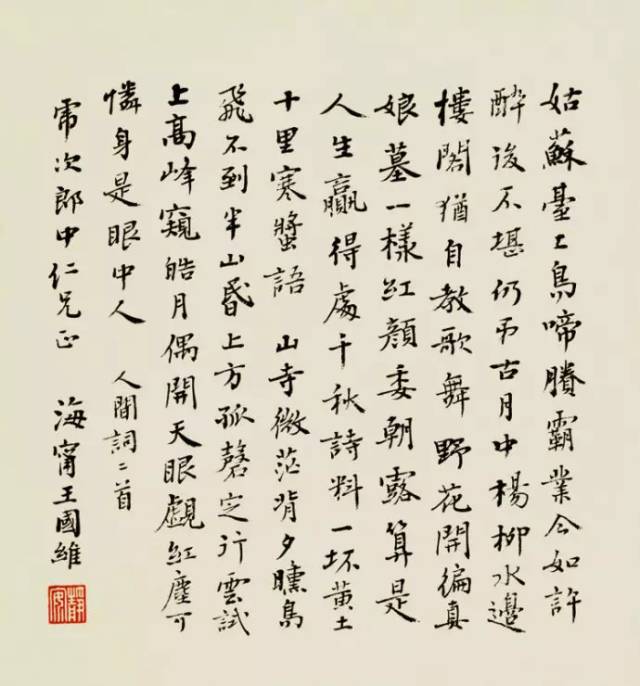 姑蘇臺上烏啼賸霸業今如許
醉後不堪仍弔古月中楊柳水邊
樓閣猶自教歌舞 野花開徧真
娘墓一樣紅顏委朝露算是
人生贏得處千秋詩料一坏黃土
十里寒螿語 山寺微茫背夕曛鳥
飛不到半山昏上方孤磬定行雲試
上高峰窺皓月偶開天眼覷紅塵可
憐身是眼中人 人間詞二首
虎次郎中仁兄正 海甯王國維
靜安